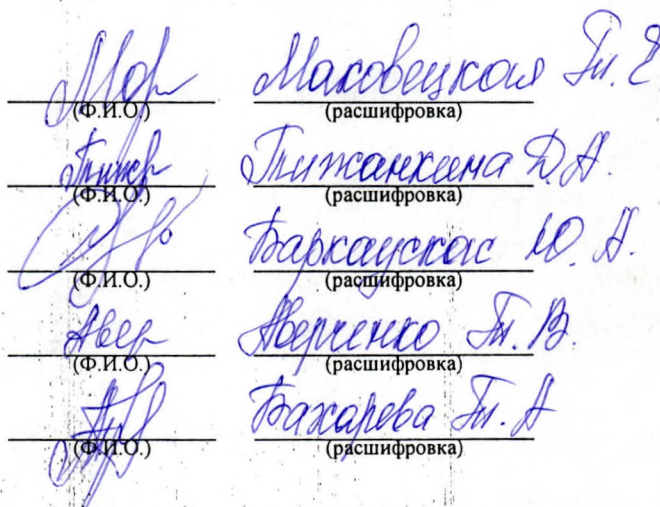 Маковецкая Т. Е
(Ф.И.О.) (расшифровка)
Тижанкина Д. А.
(Ф.И.О.) (расшифровка)
Баркаускас Ю. А.
(Ф.И.О.) (расшифровка)
Авер Аверченко Т. В.
(Ф.И.О.) (расшифровка)
Базарева Т. А
(Ф.И.О.) (расшифровка)